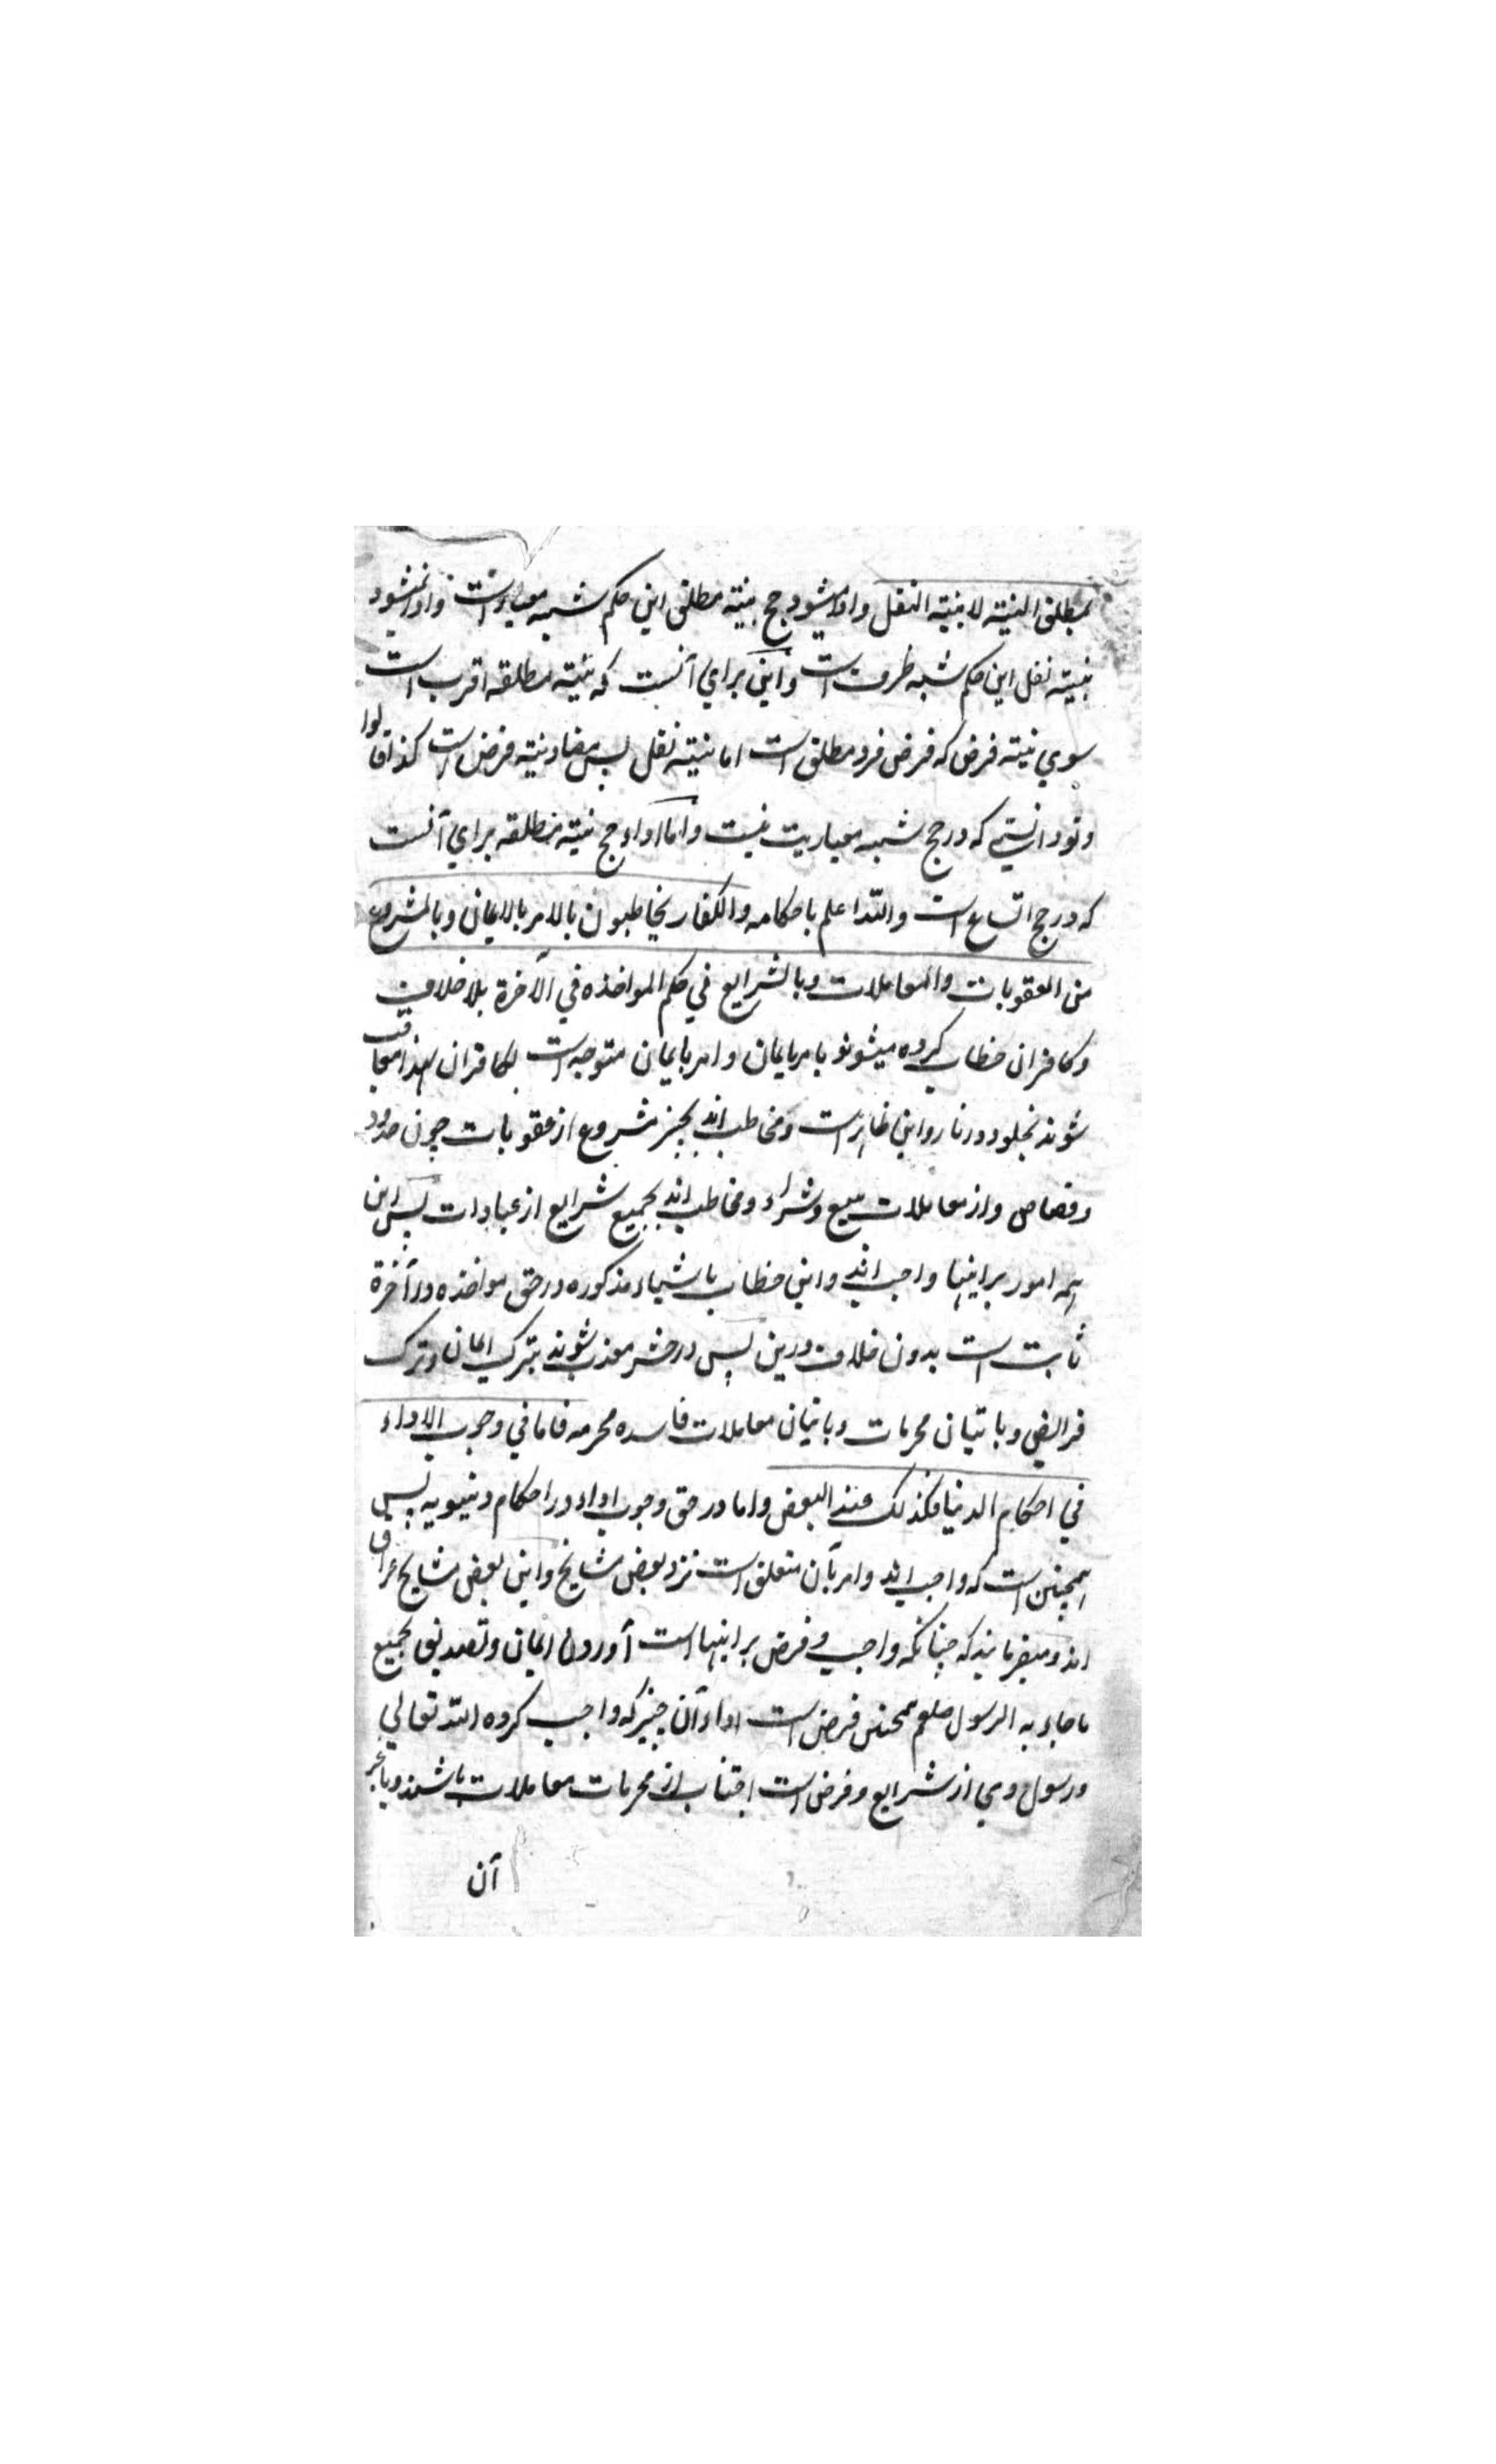 بمطلق النیته لا بنیته النفل وادا میشود حج بنیته مطلق این حکم شبه معیار است وادا نمیشود
بنیته نفل این حکم شبه ظرف است واین برای آنست که نیته مطلقه اقرب است
سوی نیته فرض که فرض فرد مطلق است اما نیته نفل پس مضاد نیته فرض است کذا قالوا
وتو دانستی که در حج شبه معیاریت نیست واما اداء حج نیته مطلقه برای آنست
که در حج اتساع است والله اعلم باحکامه والکفار یخاطبون بالامر بالایمان وبالمشروع
من العقوبات والمعاملات وبالشرایع فی حکم المواخذه فی الآخرة بلا خلاف
وکافران خطاب کرده میشوند بامر بایمان وامر بایمان متوجه است بکافران لهذا معاقب
شوند بخلود در نار واین ظاهر است ومخاطب اند بچیز مشروع از عقوبات چون حدود
وقصاص واز معاملات بیع وشراء ومخاطب اند بجمیع شرایع از عبادات پس این
همه امور بر اینها واجب اند واین خطاب باشیاء مذکوره در حق مواخذه در آخرة
ثابت است بدون خلاف درین پس در حشر معذب شوند بترک ایمان وترک
فرایض وباتیان محرمات وباتیان معاملات فاسده محرمه فاما فی وجوب الاداء
فی احکام الدنیا فکذلک عند البعض واما در حق وجوب اداء در احکام دنیویه پس
همچنین است که واجب اند وامر بآن متعلق است نزد بعض مشایخ واین بعض مشایخ عراق
اند ومیفرمایند که چنانکه واجب وفرض بر اینها است آوردن ایمان وتصدیق بجمیع
ما جاء به الرسول صلعم همچنین فرض است اداء آن چیز که واجب کرده الله تعالی
ورسول وی از شرایع وفرض است اجتناب از محرمات معاملات باشند ویا غیر
آن